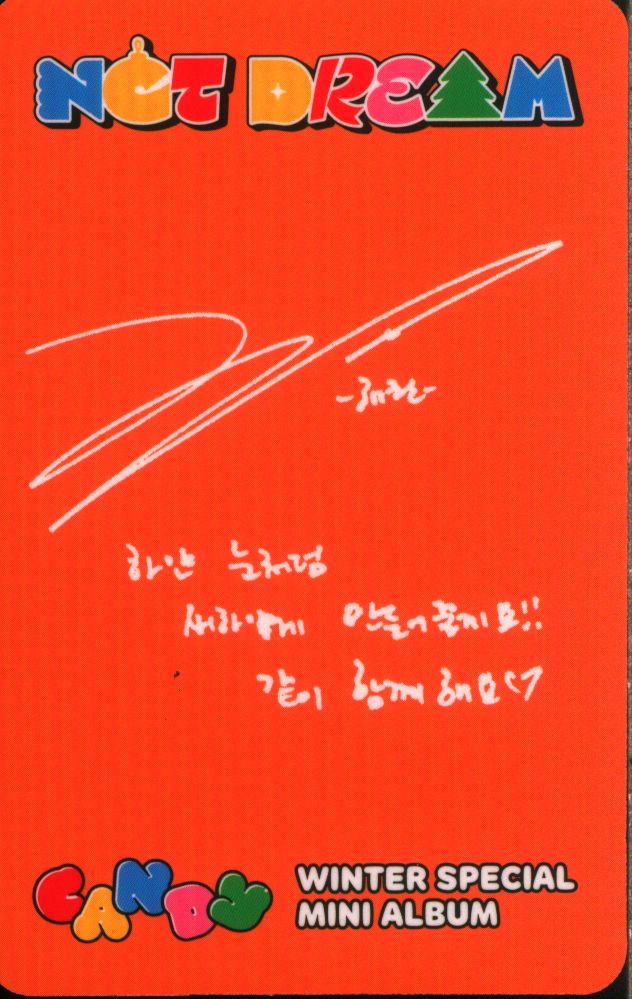 NCT DREAM
-해찬-
하얀 눈처럼
새하얗게 만들어줄지요!!
같이 함께해요♡
CANDY
WINTER SPECIAL
MINI ALBUM